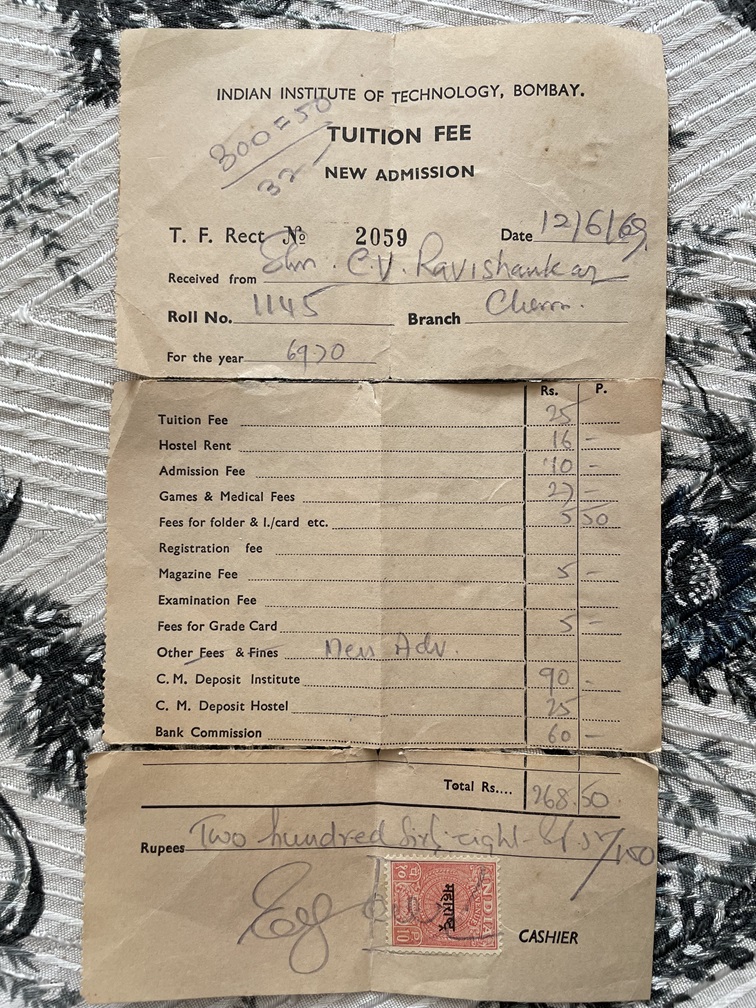 INDIAN INSTITUTE OF TECHNOLOGY, BOMBAY.
300=50
TUITION FEE
32
NEW ADMISSION
T. F. Rect № 2059 Date 12/6/69
Received from Shri. C.V. Ravishankar
Roll No. 1145 Branch Chem.
For the year 6970
Rs. P.
Tuition Fee 25
Hostel Rent 16 -
Admission Fee 10 -
Games & Medical Fees 27 -
Fees for folder & I./card etc. 5 50
Registration fee
Magazine Fee 5 -
Examination Fee
Fees for Grade Card 5 -
Other Fees & Fines Mess Adv.
C. M. Deposit Institute 90 -
C. M. Deposit Hostel 25
Bank Commission 60 -
Total Rs.... 268.50
Rupees Two hundred sixty-eight
INDIA
महाराष्ट्र
10
CASHIER